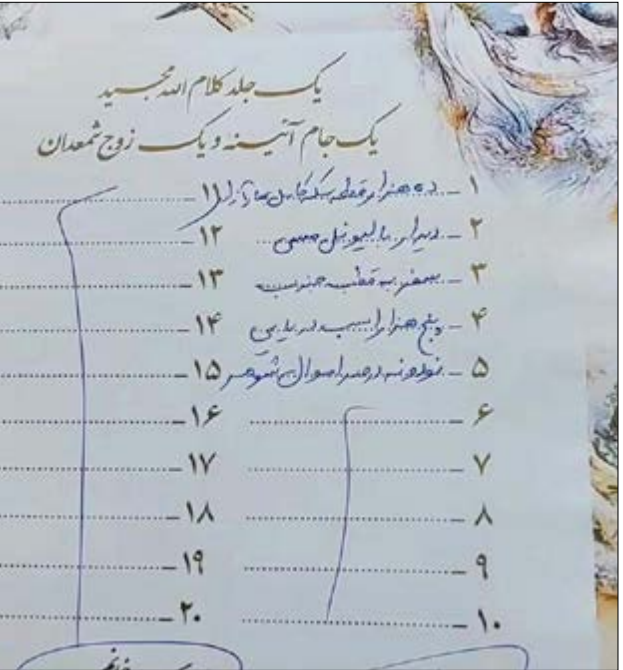 یک جلد کلام الله مجید
یک جام آئینه و یک زوج شمعدان
۱ ـ ده هزار قطعه سکه کامل بهار آزادی
۲ ـ دیدار با لیونل مسی
۳ ـ سفر به قطب جنوب
۴ ـ پنج هزار اسب دریایی
۵ ـ نود و نه درصد اموال شوهر
۶ ـ
۷ ـ
۸ ـ
۹ ـ
۱۰ ـ
۱۱ ـ
۱۲ ـ
۱۳ ـ
۱۴ ـ
۱۵ ـ
۱۶ ـ
۱۷ ـ
۱۸ ـ
۱۹ ـ
۲۰ ـ